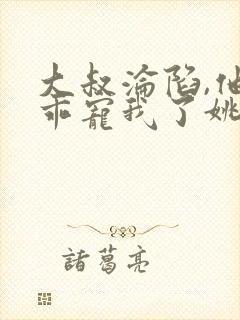 大叔淪陷,他
乖寵我了姚
諸葛亮